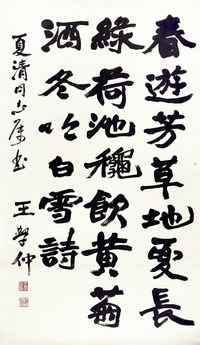 春遊芳草地夏長
綠荷池龝飲黃菊
酒冬吟白雪詩
夏清同志属书
王學仲